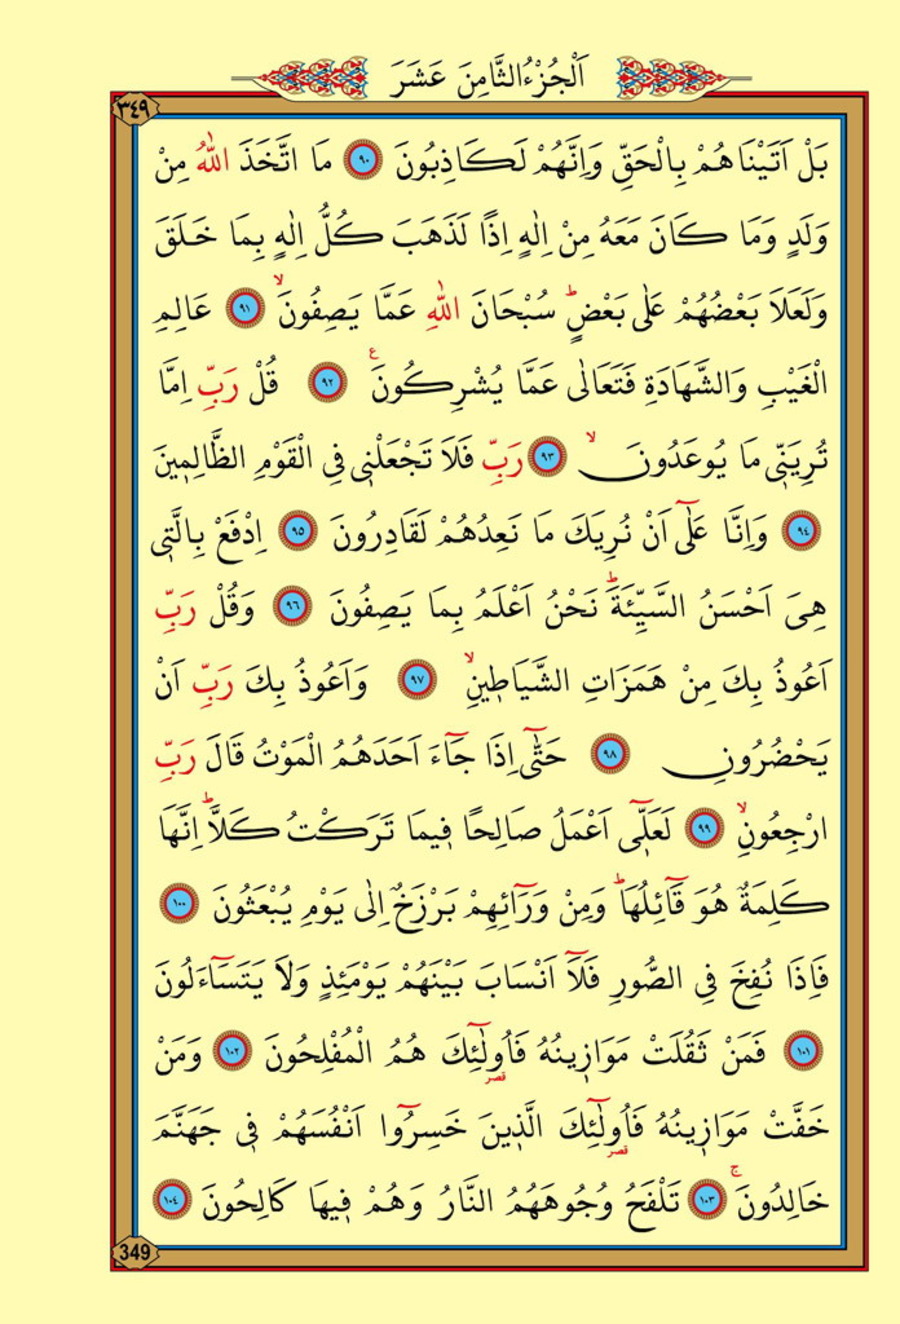 اَلْجُزْءُالثَّامِنَ عَشَرَ
٣٤٩
بَلْ اَتَيْنَاهُمْ بِالْحَقِّ وَاِنَّهُمْ لَكَاذِبُونَ ٩٠ مَا اتَّخَذَ اللّٰهُ مِنْ
وَلَدٍ وَمَا كَانَ مَعَهُ مِنْ اِلٰهٍ اِذًا لَذَهَبَ كُلُّ اِلٰهٍ بِمَا خَلَقَ
وَلَعَلَا بَعْضُهُمْ عَلٰى بَعْضٍۜ سُبْحَانَ اللّٰهِ عَمَّا يَصِفُونَۙ ٩١ عَالِمِ
الْغَيْبِ وَالشَّهَادَةِ فَتَعَالٰى عَمَّا يُشْرِكُونَ۟ ٩٢ قُلْ رَبِّ اِمَّا
تُرِيَنّ۪ي مَا يُوعَدُونَۙ ٩٣ رَبِّ فَلَا تَجْعَلْن۪ي فِي الْقَوْمِ الظَّالِم۪ينَ
٩٤ وَاِنَّا عَلٰٓى اَنْ نُرِيَكَ مَا نَعِدُهُمْ لَقَادِرُونَ ٩٥ اِدْفَعْ بِالَّت۪ي
هِيَ اَحْسَنُ السَّيِّئَةَۜ نَحْنُ اَعْلَمُ بِمَا يَصِفُونَ ٩٦ وَقُلْ رَبِّ
اَعُوذُ بِكَ مِنْ هَمَزَاتِ الشَّيَاط۪ينِۙ ٩٧ وَاَعُوذُ بِكَ رَبِّ اَنْ
يَحْضُرُونِ ٩٨ حَتّٰٓى اِذَا جَٓاءَ اَحَدَهُمُ الْمَوْتُ قَالَ رَبِّ
ارْجِعُونِۙ ٩٩ لَعَلّ۪ٓي اَعْمَلُ صَالِحًا ف۪يمَا تَرَكْتُ كَلَّاۜ اِنَّهَا
كَلِمَةٌ هُوَ قَٓائِلُهَاۜ وَمِنْ وَرَٓائِهِمْ بَرْزَخٌ اِلٰى يَوْمِ يُبْعَثُونَ ١٠٠
فَاِذَا نُفِخَ فِي الصُّورِ فَلَٓا اَنْسَابَ بَيْنَهُمْ يَوْمَئِذٍ وَلَا يَتَسَٓاءَلُونَ
١٠١ فَمَنْ ثَقُلَتْ مَوَاز۪ينُهُ فَاُو۬لٰٓئِكَ هُمُ الْمُفْلِحُونَ ١٠٢ وَمَنْ
قصر
خَفَّتْ مَوَاز۪ينُهُ فَاُو۬لٰٓئِكَ الَّذ۪ينَ خَسِرُٓوا اَنْفُسَهُمْ ف۪ي جَهَنَّمَ
قصر
خَالِدُونَۚ ١٠٣ تَلْفَحُ وُجُوهَهُمُ النَّارُ وَهُمْ ف۪يهَا كَالِحُونَ ١٠٤
349